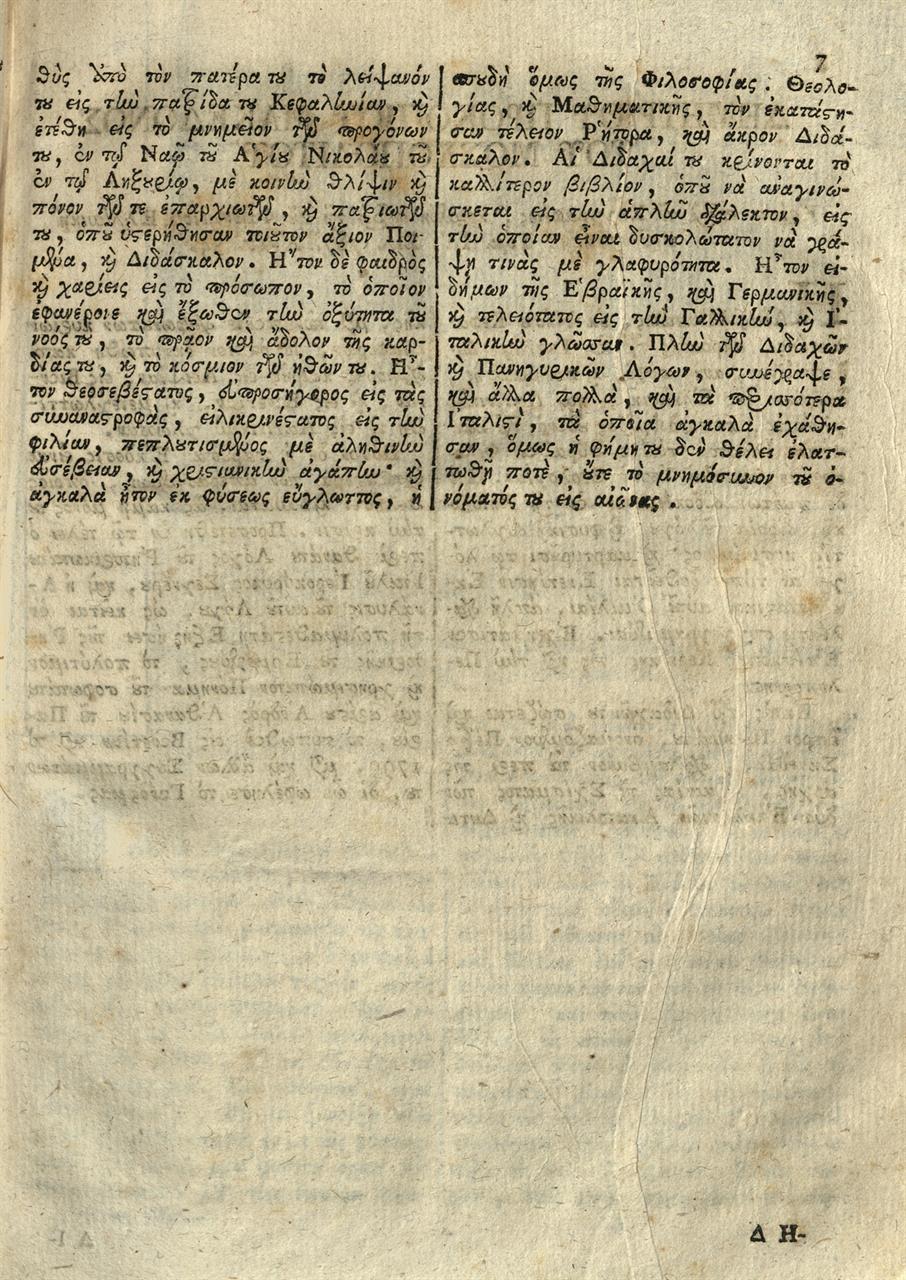 7
θὺς ἀπὸ τὸν πατέρα του τὸ λείψανόν
του εἰς τὴν πατρίδα του Κεφαλληνίαν, καὶ
ἐτέθη εἰς τὸ μνημεῖον τῶν προγόνων
του, ἐν τῷ Ναῷ τοῦ Ἁγίου Νικολάου τοῦ
ἐν τῷ Ληξουρίῳ, μὲ κοινὴν θλίψιν καὶ
πόνον τῶν τε ἐπαρχιωτῶν, καὶ πατριωτῶν
του, ὁποῦ ὑστερήθησαν τοιοῦτον ἄξιον Ποι-
μένα, καὶ Διδάσκαλον. Ἦτον δὲ φαιδρὸς
καὶ χαρίεις εἰς τὸ πρόσωπον, τὸ ὁποῖον
ἐφανέρονε καὶ ἔξωθεν τὴν ὀξύτητα τοῦ
νοός του, τὸ πρᾶον καὶ ἄδολον τῆς καρ-
δίας του, καὶ τὸ κόσμιον τῶν ἠθῶν του. Ἦ-
τον θεοσεβέστατος, εὐπροσήγορος εἰς τὰς
συναναστροφάς, εἰλικρινέστατος εἰς τὴν
φιλίαν, πεπλουτισμένος μὲ ἀληθινὴν
εὐσέβειαν, καὶ χριστιανικὴν ἀγάπην· καὶ
ἀγκαλὰ ἦτον ἐκ φύσεως εὔγλωττος, ἡ
σπουδὴ ὅμως τῆς Φιλοσοφίας, Θεολο-
γίας, καὶ Μαθηματικῆς, τὸν ἐκατάστη-
σαν τέλειον Ῥήτορα, καὶ ἄκρον Διδά-
σκαλον. Αἱ Διδαχαί του κρίνονται τὸ
καλλίτερον βιβλίον, ὁποῦ νὰ ἀναγινώ-
σκεται εἰς τὴν ἁπλῆν διάλεκτον, εἰς
τὴν ὁποίαν εἶναι δυσκολώτατον νὰ γρά-
ψῃ τινὰς μὲ γλαφυρότητα. Ἦτον εἰ-
δήμων τῆς Ἑβραϊκῆς, καὶ Γερμανικῆς,
καὶ τελειότατος εἰς τὴν Γαλλικήν, καὶ Ἰ-
ταλικὴν γλῶσσαν. Πλὴν τῶν Διδαχῶν
καὶ Πανηγυρικῶν Λόγων, συνέγραψε,
καὶ ἄλλα πολλά, καὶ τὰ περισσότερα
Ἰταλιστί, τὰ ὁποῖα ἀγκαλὰ ἐχάθη-
σαν, ὅμως ἡ φήμη του δὲν θέλει ἐλατ-
τωθῇ ποτέ, οὔτε τὸ μνημόσυνον τοῦ ὀ-
νόματός του εἰς αἰῶνας.
Δ Η-